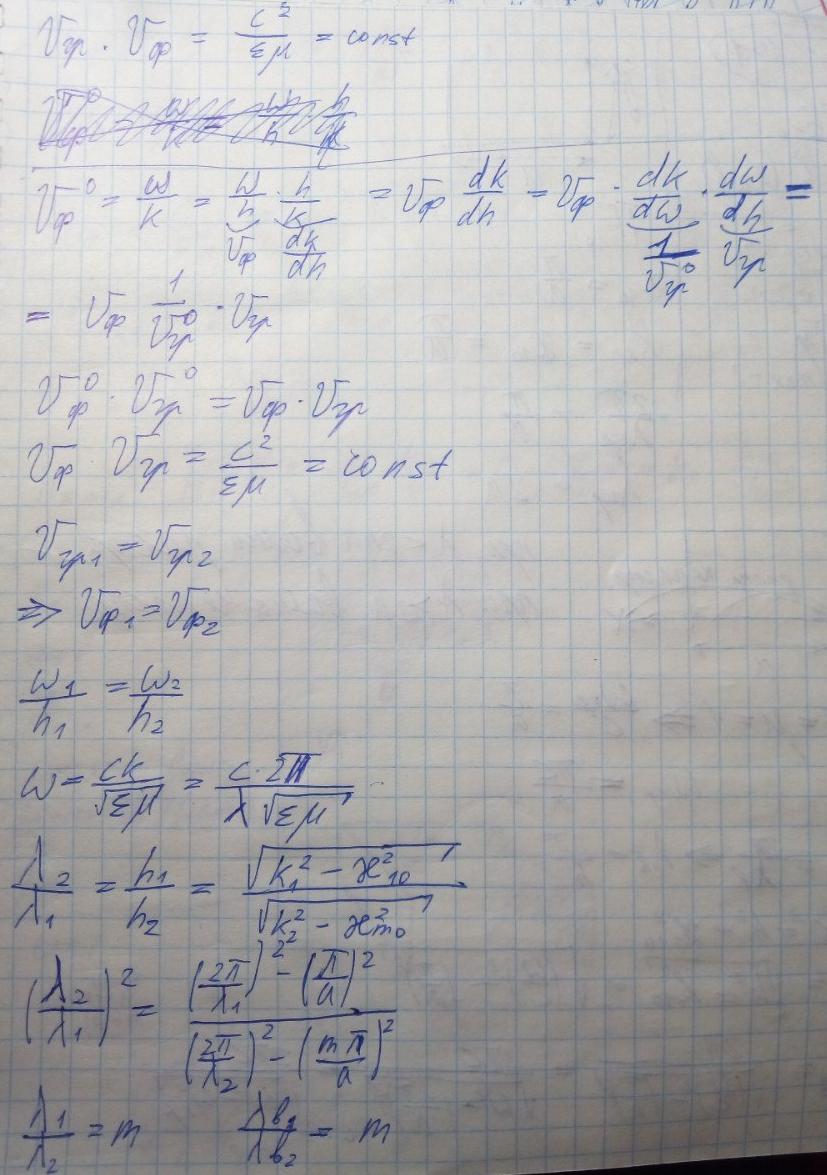 v_гр · v_ф = c²/εμ = const
v_ф⁰ = ω/k = ω/h · h/k = v_ф dk/dh = v_ф · dk/dω · dω/dh =
v_ф dk/dh 1/v_гр⁰ v_гр
= v_ф 1/v_гр⁰ · v_гр
v_ф⁰ · v_гр⁰ = v_ф · v_гр
v_ф v_гр = c²/εμ = const
v_гр1 = v_гр2
⇒ v_ф1 = v_ф2
ω₁/h₁ = ω₂/h₂
ω = ck/√εμ = c·2π/λ√εμ
λ₂/λ₁ = h₁/h₂ = √(k₁² − æ²₁₀)/√(k₂² − æ²m0)
(λ₂/λ₁)² = ((2π/λ₁)² − (π/a)²)/((2π/λ₂)² − (mπ/a)²)
λ₁/λ₂ = m λв₁/λв₂ = m